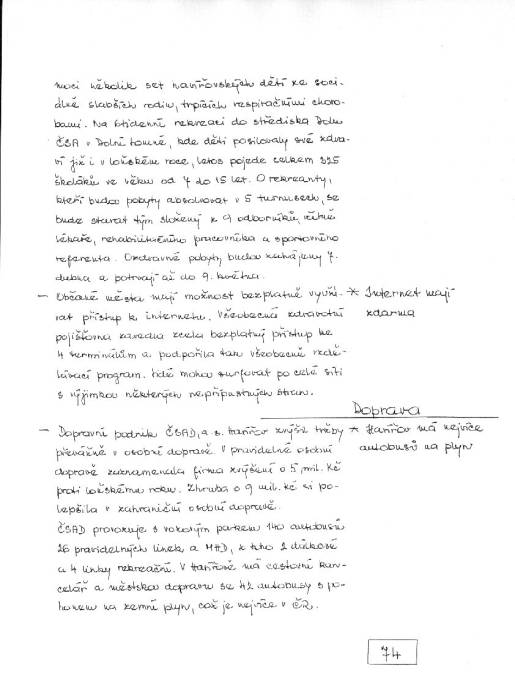 moci několik set havířovských dětí ze soci-
álně slabších rodin, trpících respiračními choro-
bami. Na třítýdenní rekreaci do střediska Dolu
ČSA v Dolní Lomné, kde děti posilovaly své zdra-
ví již i v loňském roce, letos pojede celkem 325
školáků ve věku od 7 do 15 let. O rekreanty,
kteří budou pobyty absolvovat v 5 turnusech, se
bude starat tým složený z 9 odborníků, včetně
lékaře, rehabilitačního pracovníka a sportovního
referenta. Ozdravné pobyty budou zahájeny 7.
dubna a potrvají až do 9. května.
– Občané města mají možnost bezplatně využí- * Internet mají
vat přístup k internetu. Všeobecná zdravotní zdarma
pojišťovna zavedla zcela bezplatný přístup ke
4 terminálům a podpořila tak všeobecně vzdě-
lávací program. Lidé mohou surfovat po celé síti
s výjimkou některých nepřípustných stran.
Doprava
– Dopravní podnik ČSAD, a.s. Havířov zvýšil tržby * Havířov má nejvíce
převážně v osobní dopravě. V pravidelné osobní autobusů na plyn
dopravě zaznamenala firma zvýšení o 5 mil. Kč
proti loňskému roku. Zhruba o 9 mil. Kč si po-
lepšila v zahraniční osobní dopravě.
ČSAD provozuje s vozovým parkem 140 autobusů
26 pravidelných linek a MHD, z toho 2 důlkové
a 4 linky rekreační. V Havířově má cestovní kan-
celář a městskou dopravu se 42 autobusy s po-
honem na zemní plyn, což je nejvíce v ČR.
74